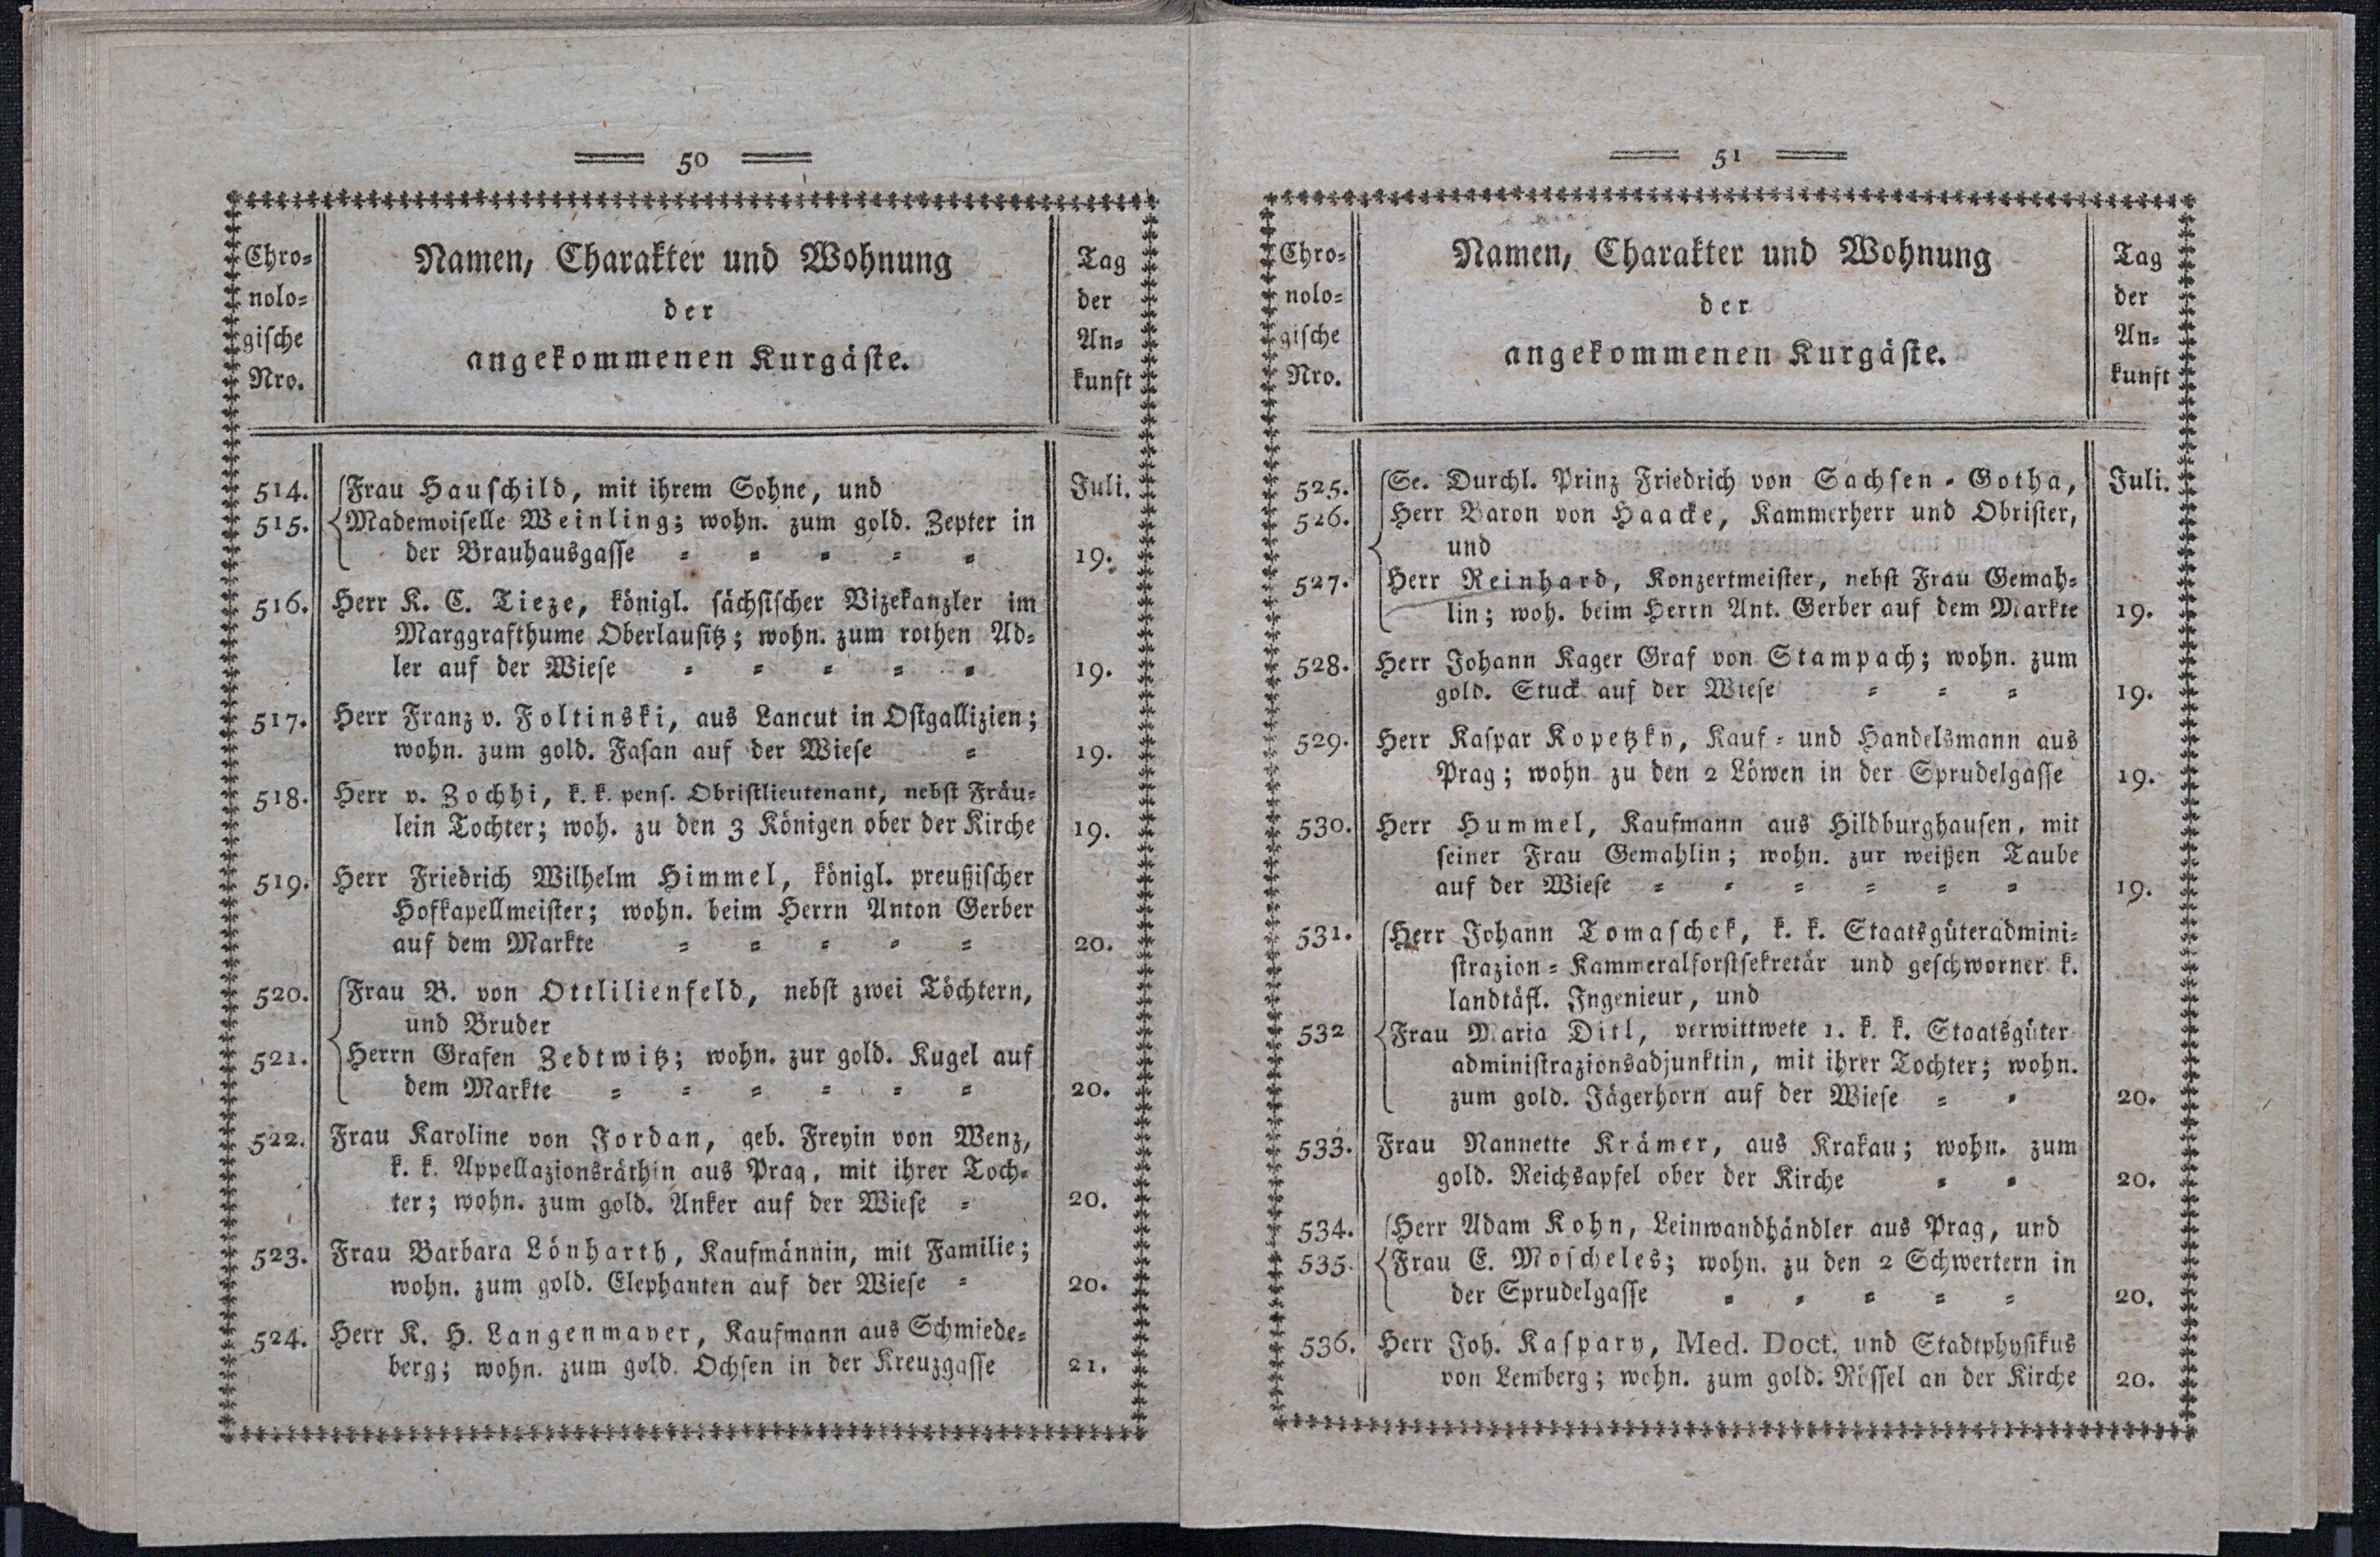 50
Chro-
nolo-
gische
Nro.
Namen, Charakter und Wohnung
der
angekommenen Kurgäste.
Tag
der
An-
kunft
Juli.
514. Frau Hauschild, mit ihrem Sohne, und
515. Mademoiselle Weinling; wohn. zum gold. Zepter in
der Brauhausgasse = = = = = 19.
516. Herr K. C. Tieze, königl. sächsischer Vizekanzler im
Marggrafthume Oberlausitz; wohn. zum rothen Ad-
ler auf der Wiese = = = = = 19.
517. Herr Franz v. Foltinski, aus Lancut in Ostgallizien;
wohn. zum gold. Fasan auf der Wiese = 19.
518. Herr v. Zochhi, k. k. pens. Obristlieutenant, nebst Fräu-
lein Tochter; woh. zu den 3 Königen ober der Kirche 19.
519. Herr Friedrich Wilhelm Himmel, königl. preußischer
Hofkapellmeister; wohn. beim Herrn Anton Gerber
auf dem Markte = = = = = 20.
520. Frau B. von Ottlilienfeld, nebst zwei Töchtern,
und Bruder
521. Herrn Grafen Zedtwitz; wohn. zur gold. Kugel auf
dem Markte = = = = = = 20.
522. Frau Karoline von Jordan, geb. Freyin von Wenz,
k. k. Appellazionsräthin aus Prag, mit ihrer Toch-
ter; wohn. zum gold. Anker auf der Wiese = 20.
523. Frau Barbara Lönharth, Kaufmännin, mit Familie;
wohn. zum gold. Elephanten auf der Wiese = 20.
524. Herr K. H. Langenmayer, Kaufmann aus Schmiede-
berg; wohn. zum gold. Ochsen in der Kreuzgasse 21.
51
Chro-
nolo-
gische
Nro.
Namen, Charakter und Wohnung
der
angekommenen Kurgäste.
Tag
der
An-
kunft
Juli.
525. Se. Durchl. Prinz Friedrich von Sachsen-Gotha,
526. Herr Baron von Haacke, Kammerherr und Obrister,
und
527. Herr Reinhard, Konzertmeister, nebst Frau Gemah-
lin; woh. beim Herrn Ant. Gerber auf dem Markte 19.
528. Herr Johann Kager Graf von Stampach; wohn. zum
gold. Stuck auf der Wiese = = = 19.
529. Herr Kaspar Kopetzky, Kauf- und Handelsmann aus
Prag; wohn zu den 2 Löwen in der Sprudelgasse 19.
530. Herr Hummel, Kaufmann aus Hildburghausen, mit
seiner Frau Gemahlin; wohn. zur weißen Taube
auf der Wiese = = = = = = 19.
531. Herr Johann Tomaschek, k. k. Staatsgüteradmini-
strazion-Kammeralforstsekretär und geschworner k.
landtäfl. Ingenieur, und
532 Frau Maria Ditl, verwittwete 1. k. k. Staatsgüter
administrazionsadjunktin, mit ihrer Tochter; wohn.
zum gold. Jägerhorn auf der Wiese = = 20.
533. Frau Nannette Krämer, aus Krakau; wohn. zum
gold. Reichsapfel ober der Kirche = = 20.
534. Herr Adam Kohn, Leinwandhändler aus Prag, und
535. Frau E. Moscheles; wohn. zu den 2 Schwertern in
der Sprudelgasse = = = = = 20.
536. Herr Joh. Kaspary, Med. Doct. und Stadtphysikus
von Lemberg; wohn. zum gold. Rössel an der Kirche 20.